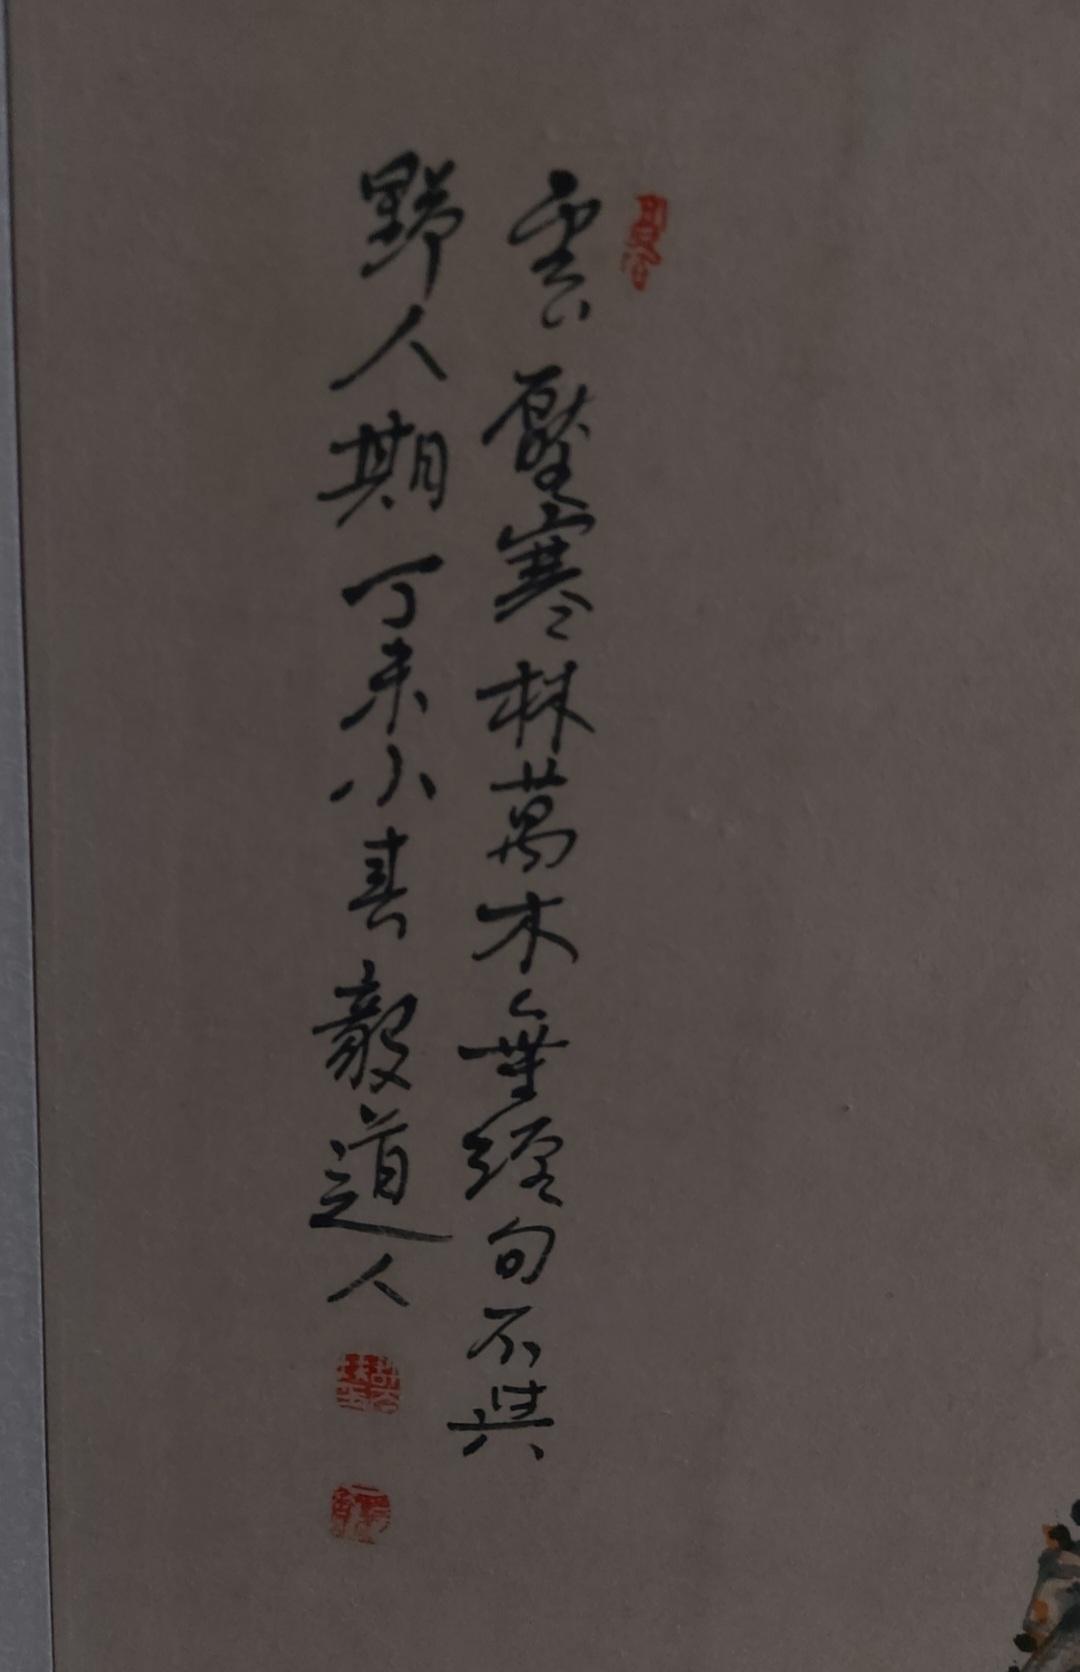 雲壓寒林萬木無經句不與
野人期丁未小春毅道人